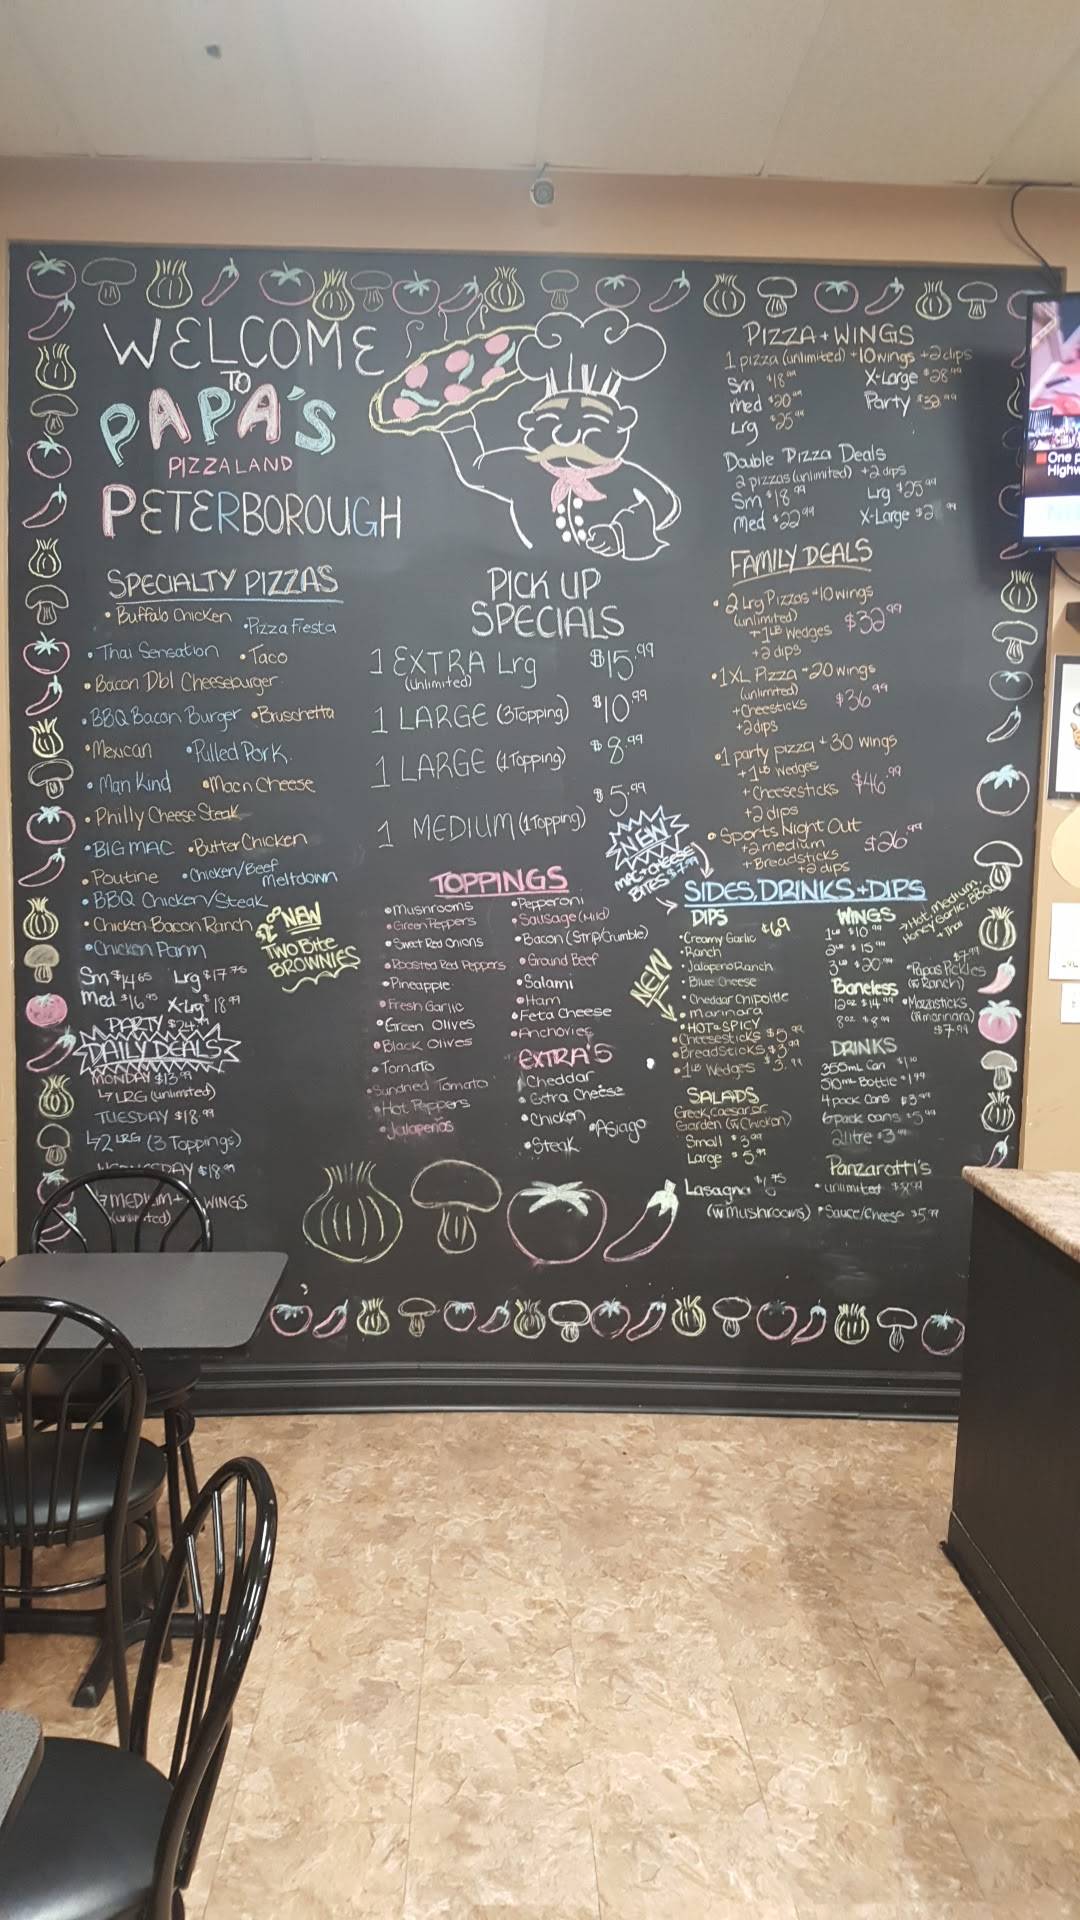 WELCOME
TO
PAPA'S
PIZZALAND
PETERBOROUGH
SPECIALTY PIZZA'S
• Buffalo Chicken • Pizza Fiesta
• Thai Sensation • Taco
• Bacon Dbl Cheeseburger
• BBQ Bacon Burger • Bruschetta
• Mexican • Pulled Pork
• Man Kind • Mac n Cheese
• Philly Cheese Steak
• BIG MAC • Butter Chicken
• Poutine • Chicken/Beef Meltdown
• BBQ Chicken/Steak
• Chicken Bacon Ranch
• Chicken Parm
Sm $14.65 Lrg $17.75
Med $16.95 X-Lrg $18.99
PARTY $24.99
NEW
TWO Bite
BROWNIES
DAILY DEALS
MONDAY $13.99
↳ LRG (unlimited)
TUESDAY $18.99
↳ 2 LRG (3 Toppings)
WEDNESDAY $18.99
MEDIUM + WINGS
(unlimited)
PICK UP
SPECIALS
1 EXTRA Lrg $15.99
(unlimited)
1 LARGE (3 Topping) $10.99
1 LARGE (1 Topping) $8.99
1 MEDIUM (1 Topping) $5.99
NEW
MAC + CHEESE
BITES $7.99
TOPPINGS
• Mushrooms
• Green Peppers
• Sweet Red Onions
• Roasted Red Peppers
• Pineapple
• Fresh Garlic
• Green Olives
• Black Olives
• Tomato
• Sundried Tomato
• Hot Peppers
• Jalapenos
• Pepperoni
• Sausage (Mild)
• Bacon (Strip/Crumble)
• Ground Beef
• Salami
• Ham
• Feta Cheese
• Anchovies
EXTRA'S
Cheddar
• Extra Cheese
• Chicken • Asiago
• Steak
PIZZA + WINGS
1 pizza (unlimited) + 10 wings + 2 dips
Sm $18.99 X-Large $28.99
Med $20.99 Party $32.99
Lrg $25.99
Double Pizza Deals
2 pizzas (unlimited) + 2 dips
Sm $18.99 Lrg $25.99
Med $22.99 X-Large $2 .99
FAMILY DEALS
• 2 Lrg Pizzas + 10 wings
(unlimited) $32.99
+ 1LB Wedges
+ 2 dips
• 1 XL Pizza + 20 wings
(unlimited) $36.99
+ Cheesticks
+ 2 dips
• 1 party pizza + 30 wings
+ 1LB wedges
+ Cheesesticks $46.99
+ 2 dips
• Sports Night Out
+ 2 medium $26.99
+ Breadsticks
+ 2 dips
SIDES, DRINKS + DIPS
DIPS $.69
• Creamy Garlic
• Ranch
• Jalapeno Ranch
• Blue Cheese
• Cheddar Chipoltle
• Marinara
• HOT + SPICY
NEW
• Cheesesticks $5.99
• Breadsticks $3.99
• 1LB Wedges $3.99
SALADS
Greek, caesar or
Garden (w Chicken)
Small $3.99
Large $5.99
Lasagna
(w mushrooms)
WINGS
1LB $10.99
2LB $15.99
3LB $20.99
→ Hot, Medium,
Honey Garlic, BBQ
+ Thai
Boneless
12oz $14.99
8oz $8.99
• Papas Pickles $7.99
(w Ranch)
• Mozzasticks
(w marinara)
$7.99
DRINKS
355mL Can
510mL Bottle $1.99
4 pack cans $3.99
6 pack cans $5.99
2 litre $3.99
Panzarotti's
• unlimited $8.99
• Sauce/Cheese $5.99
One p
Highw